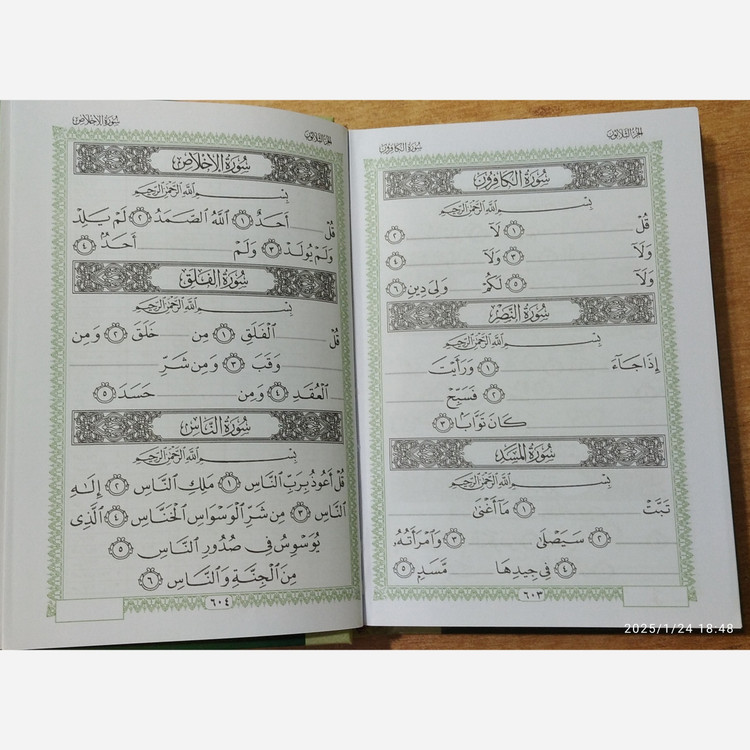 الجزء الثلاثون
سورة الكافرون
سُورَةُ الكَافِرُونَ
بِسْمِ اللَّهِ الرَّحْمَٰنِ الرَّحِيمِ
قُلْ ١ لَآ ٢
وَلَآ ٣ وَلَآ ٤
وَلَآ ٥ لَكُمْ وَلِيَ دِينِ ٦
سُورَةُ النَّصْرِ
بِسْمِ اللَّهِ الرَّحْمَٰنِ الرَّحِيمِ
إِذَا جَآءَ ١ وَرَأَيْتَ
٢ فَسَبِّحْ
كَانَ تَوَّابَۢا ٣
سُورَةُ المَسَدِ
بِسْمِ اللَّهِ الرَّحْمَٰنِ الرَّحِيمِ
تَبَّتْ ١ مَآ أَغْنَىٰ
٢ سَيَصْلَىٰ ٣ وَٱمْرَأَتُهُۥ
٤ فِى جِيدِهَا مَّسَدِۭ ٥
٦٠٣
الجزء الثلاثون
سورة الإخلاص
سُورَةُ الإِخْلَاصِ
بِسْمِ اللَّهِ الرَّحْمَٰنِ الرَّحِيمِ
قُلْ أَحَدٌ ١ ٱللَّهُ ٱلصَّمَدُ ٢ لَمْ يَلِدْ
وَلَمْ يُولَدْ ٣ وَلَمْ أَحَدٌۢ ٤
سُورَةُ الفَلَقِ
بِسْمِ اللَّهِ الرَّحْمَٰنِ الرَّحِيمِ
قُلْ ٱلْفَلَقِ ١ مِن خَلَقَ ٢ وَمِن
وَقَبَ ٣ وَمِن شَرِّ
ٱلْعُقَدِ ٤ وَمِن حَسَدَ ٥
سُورَةُ النَّاسِ
بِسْمِ اللَّهِ الرَّحْمَٰنِ الرَّحِيمِ
قُلْ أَعُوذُ بِرَبِّ ٱلنَّاسِ ١ مَلِكِ ٱلنَّاسِ ٢ إِلَٰهِ
ٱلنَّاسِ ٣ مِن شَرِّ ٱلْوَسْوَاسِ ٱلْخَنَّاسِ ٤ ٱلَّذِى
يُوَسْوِسُ فِى صُدُورِ ٱلنَّاسِ ٥
مِنَ ٱلْجِنَّةِ وَٱلنَّاسِ ٦
٦٠٤
2025/1/24 18:48